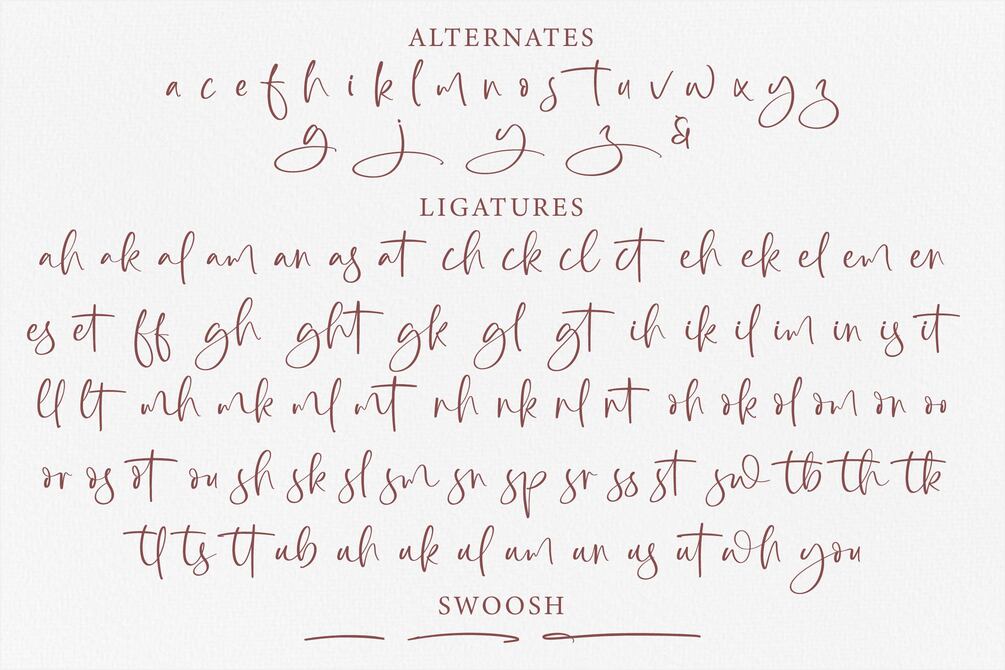 ALTERNATES
a c e f h i k l m n o s t u v w x y z
g j y z &
LIGATURES
ah ak al am an as at ch ck cl ct eh ek el em en
es et ff gh ght gk gl gt ih ik il im in is it
ll lt mh mk ml mt nh nk nl nt oh ok ol om on oo
or os ot ou sh sk sl sm sn sp sr ss st sw tb th tk
tl ts tt ub uh uk ul um un us ut wh you
SWOOSH